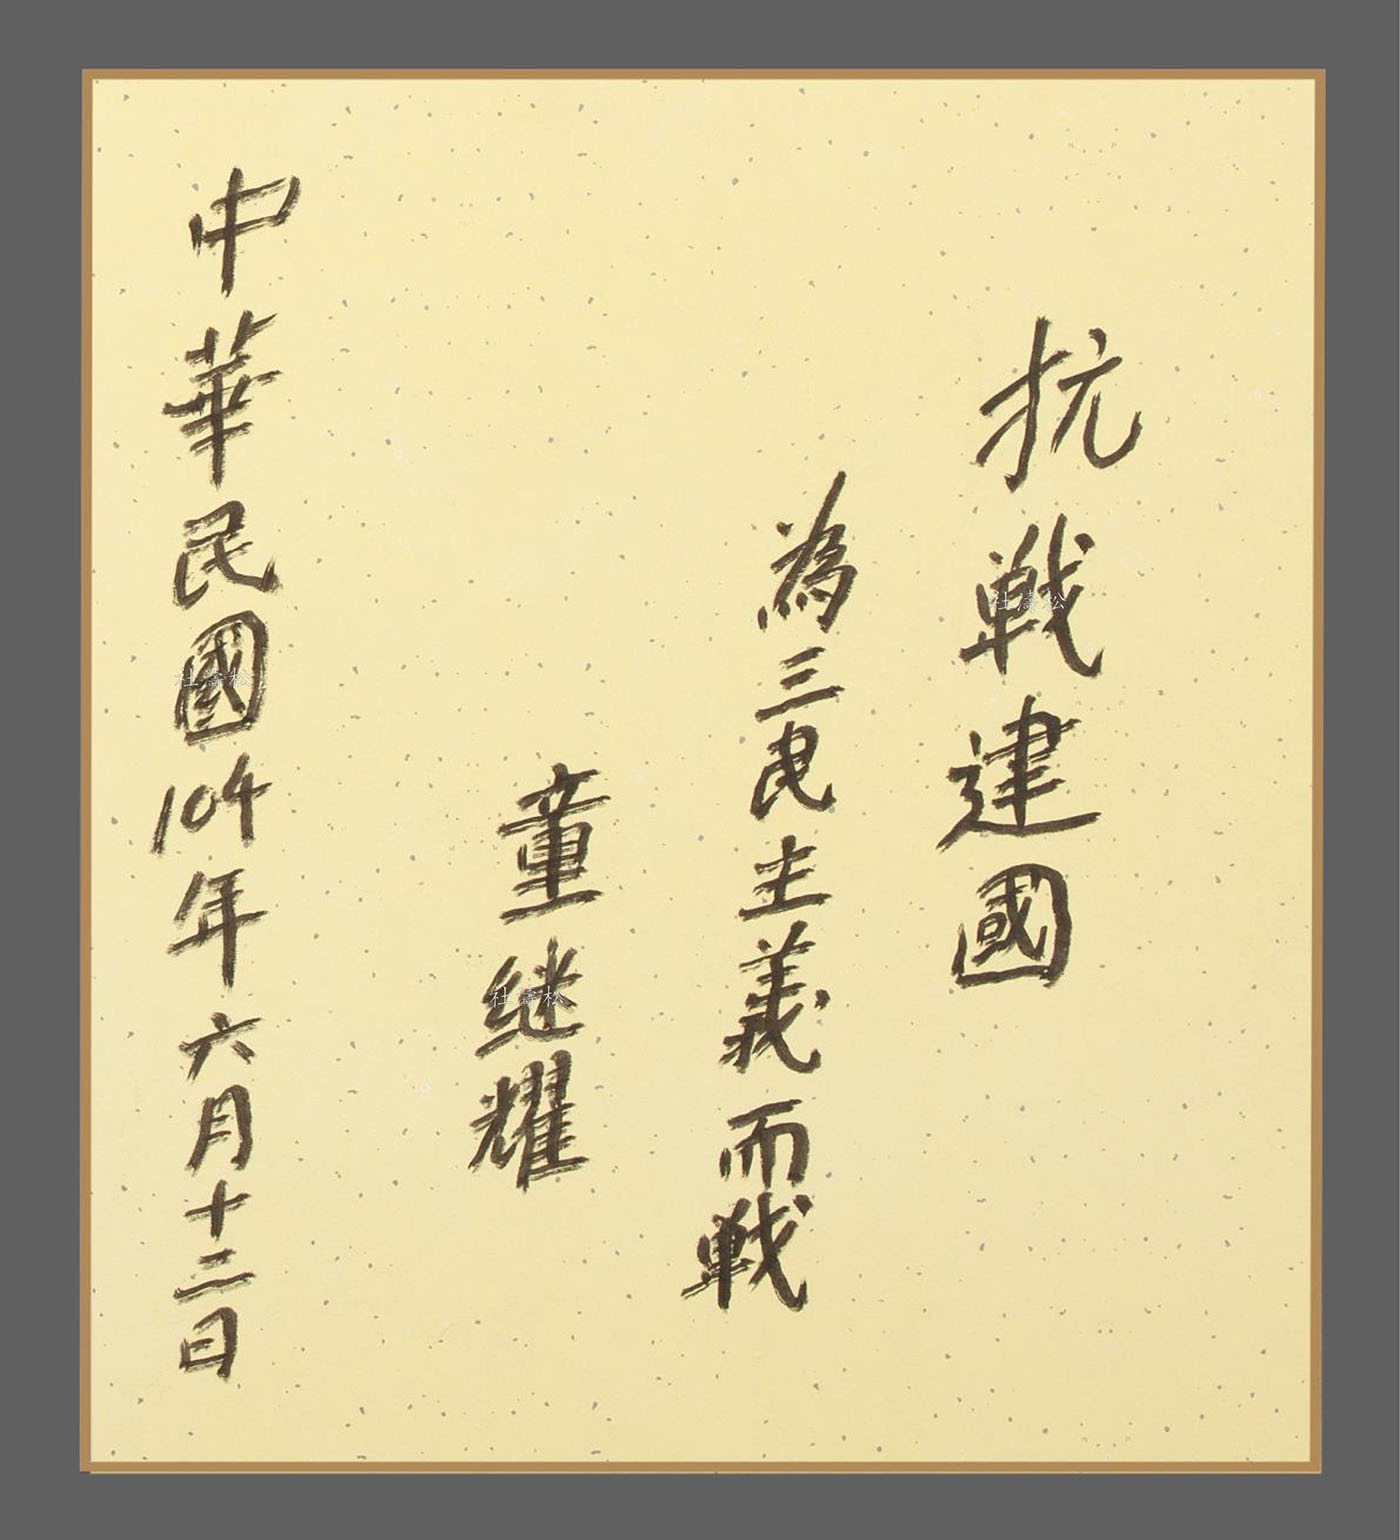 抗戦建國
為三民主義而戦
童继耀
中華民國104年六月十二日
杜濤松
杜濤松
杜濤松